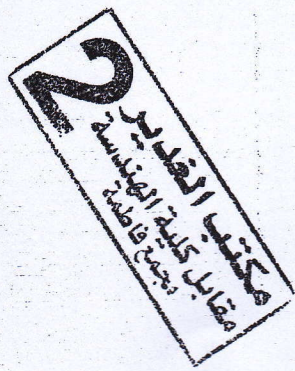 مكتب الغدير
2
مقابل كلية الهندسة
مجمع فاطمة